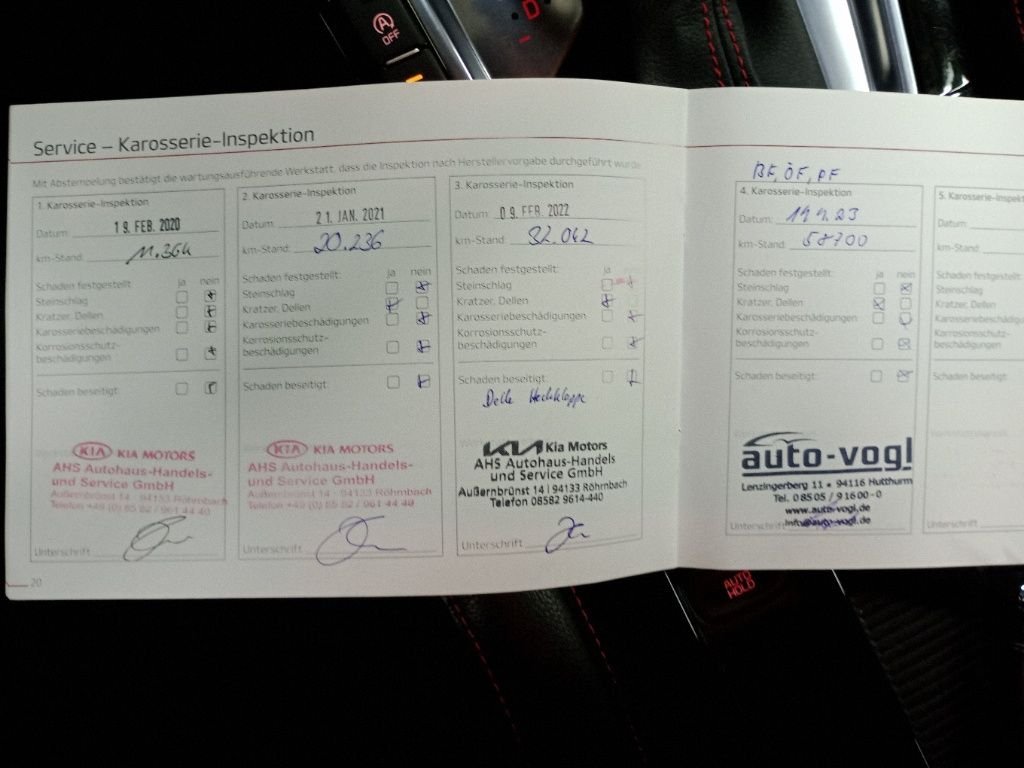 A
OFF
D
Service – Karosserie-Inspektion
Mit Abstempelung bestätigt die wartungsausführende Werkstatt, dass die Inspektion nach Herstellervorgabe durchgeführt wurde
1. Karosserie-Inspektion
Datum: 19. FEB. 2020
km-Stand: 11.364
Schaden festgestellt: ja nein
Steinschlag
Kratzer, Dellen
Karosseriebeschädigungen
Korrosionsschutz-
beschädigungen
Schaden beseitigt:
KIA KIA MOTORS
AHS Autohaus-Handels-
und Service GmbH
Außernbrünst 14 · 94133 Röhrnbach
Telefon +49 (0) 85 82 / 961 44 40
Unterschrift
20
2. Karosserie-Inspektion
Datum: 21. JAN. 2021
km-Stand: 20.236
Schaden festgestellt: ja nein
Steinschlag
Kratzer, Dellen
Karosseriebeschädigungen
Korrosionsschutz-
beschädigungen
Schaden beseitigt:
KIA KIA MOTORS
AHS Autohaus-Handels-
und Service GmbH
Außernbrünst 14 · 94133 Röhrnbach
Telefon +49 (0) 85 82 / 961 44 40
Unterschrift
3. Karosserie-Inspektion
Datum: 09. FEB. 2022
km-Stand: 32.042
Schaden festgestellt: ja
Steinschlag
Kratzer, Dellen
Karosseriebeschädigungen
Korrosionsschutz-
beschädigungen
Schaden beseitigt:
Delle Heckklappe
KIA Kia Motors
AHS Autohaus-Handels
und Service GmbH
Außernbrünst 14 | 94133 Röhrnbach
Telefon 08582 9614-440
Unterschrift
BF, ÖF, PF
4. Karosserie-Inspektion
Datum:
km-Stand: 58700
Schaden festgestellt: ja nein
Steinschlag
Kratzer, Dellen
Karosseriebeschädigungen
Korrosionsschutz-
beschädigungen
Schaden beseitigt:
auto-vogl
Lenzingerberg 11 • 94116 Hutthurm
Tel. 0 85 05 / 9 16 00-0
www.auto-vogl.de
Unterschrift info@auto-vogl.de
5. Karosserie-Inspektion
Datum:
km-Stand:
Schaden festgestellt:
Steinschlag
Kratzer, Dellen
Korrosionsschutz-
Schaden beseitigt:
Unterschrift
AUTO
HOLD